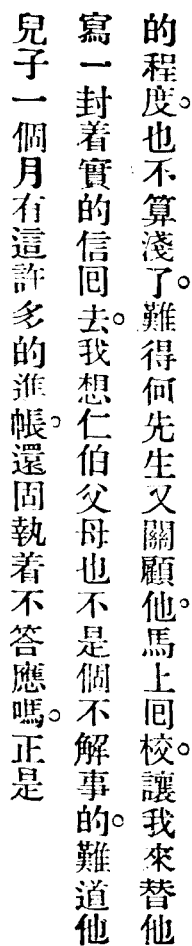 的程度。也不算淺了。難得何先生又關顧他。馬上囘校。讓我來替他
寫一封着實的信囘去。我想仁伯父母也不是個不解事的。難道他
兒子一個月有這許多的進帳。還固執着不答應嗎。正是